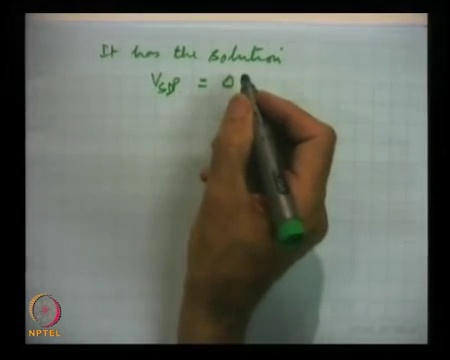 It has the solution
V_SDP = 0
NPTEL